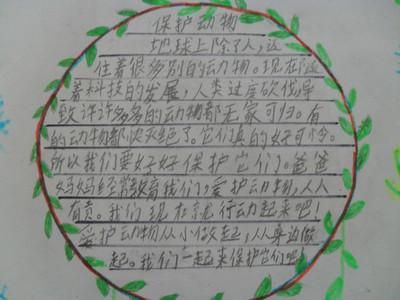 保护动物
地球上除了人,还
住着很多别的动物。现在随
着科技的发展,人类过度砍伐,导
致许许多多的动物都无家可归。有
的动物都快灭绝了。它们真的好可怜。
所以我们要好好保护它们。爸爸
妈妈经常教育我们,爱护动物,人人
有责。我们现在就行动起来吧!
爱护动物从小做起,从身边做
起。我们一起来保护它们吧